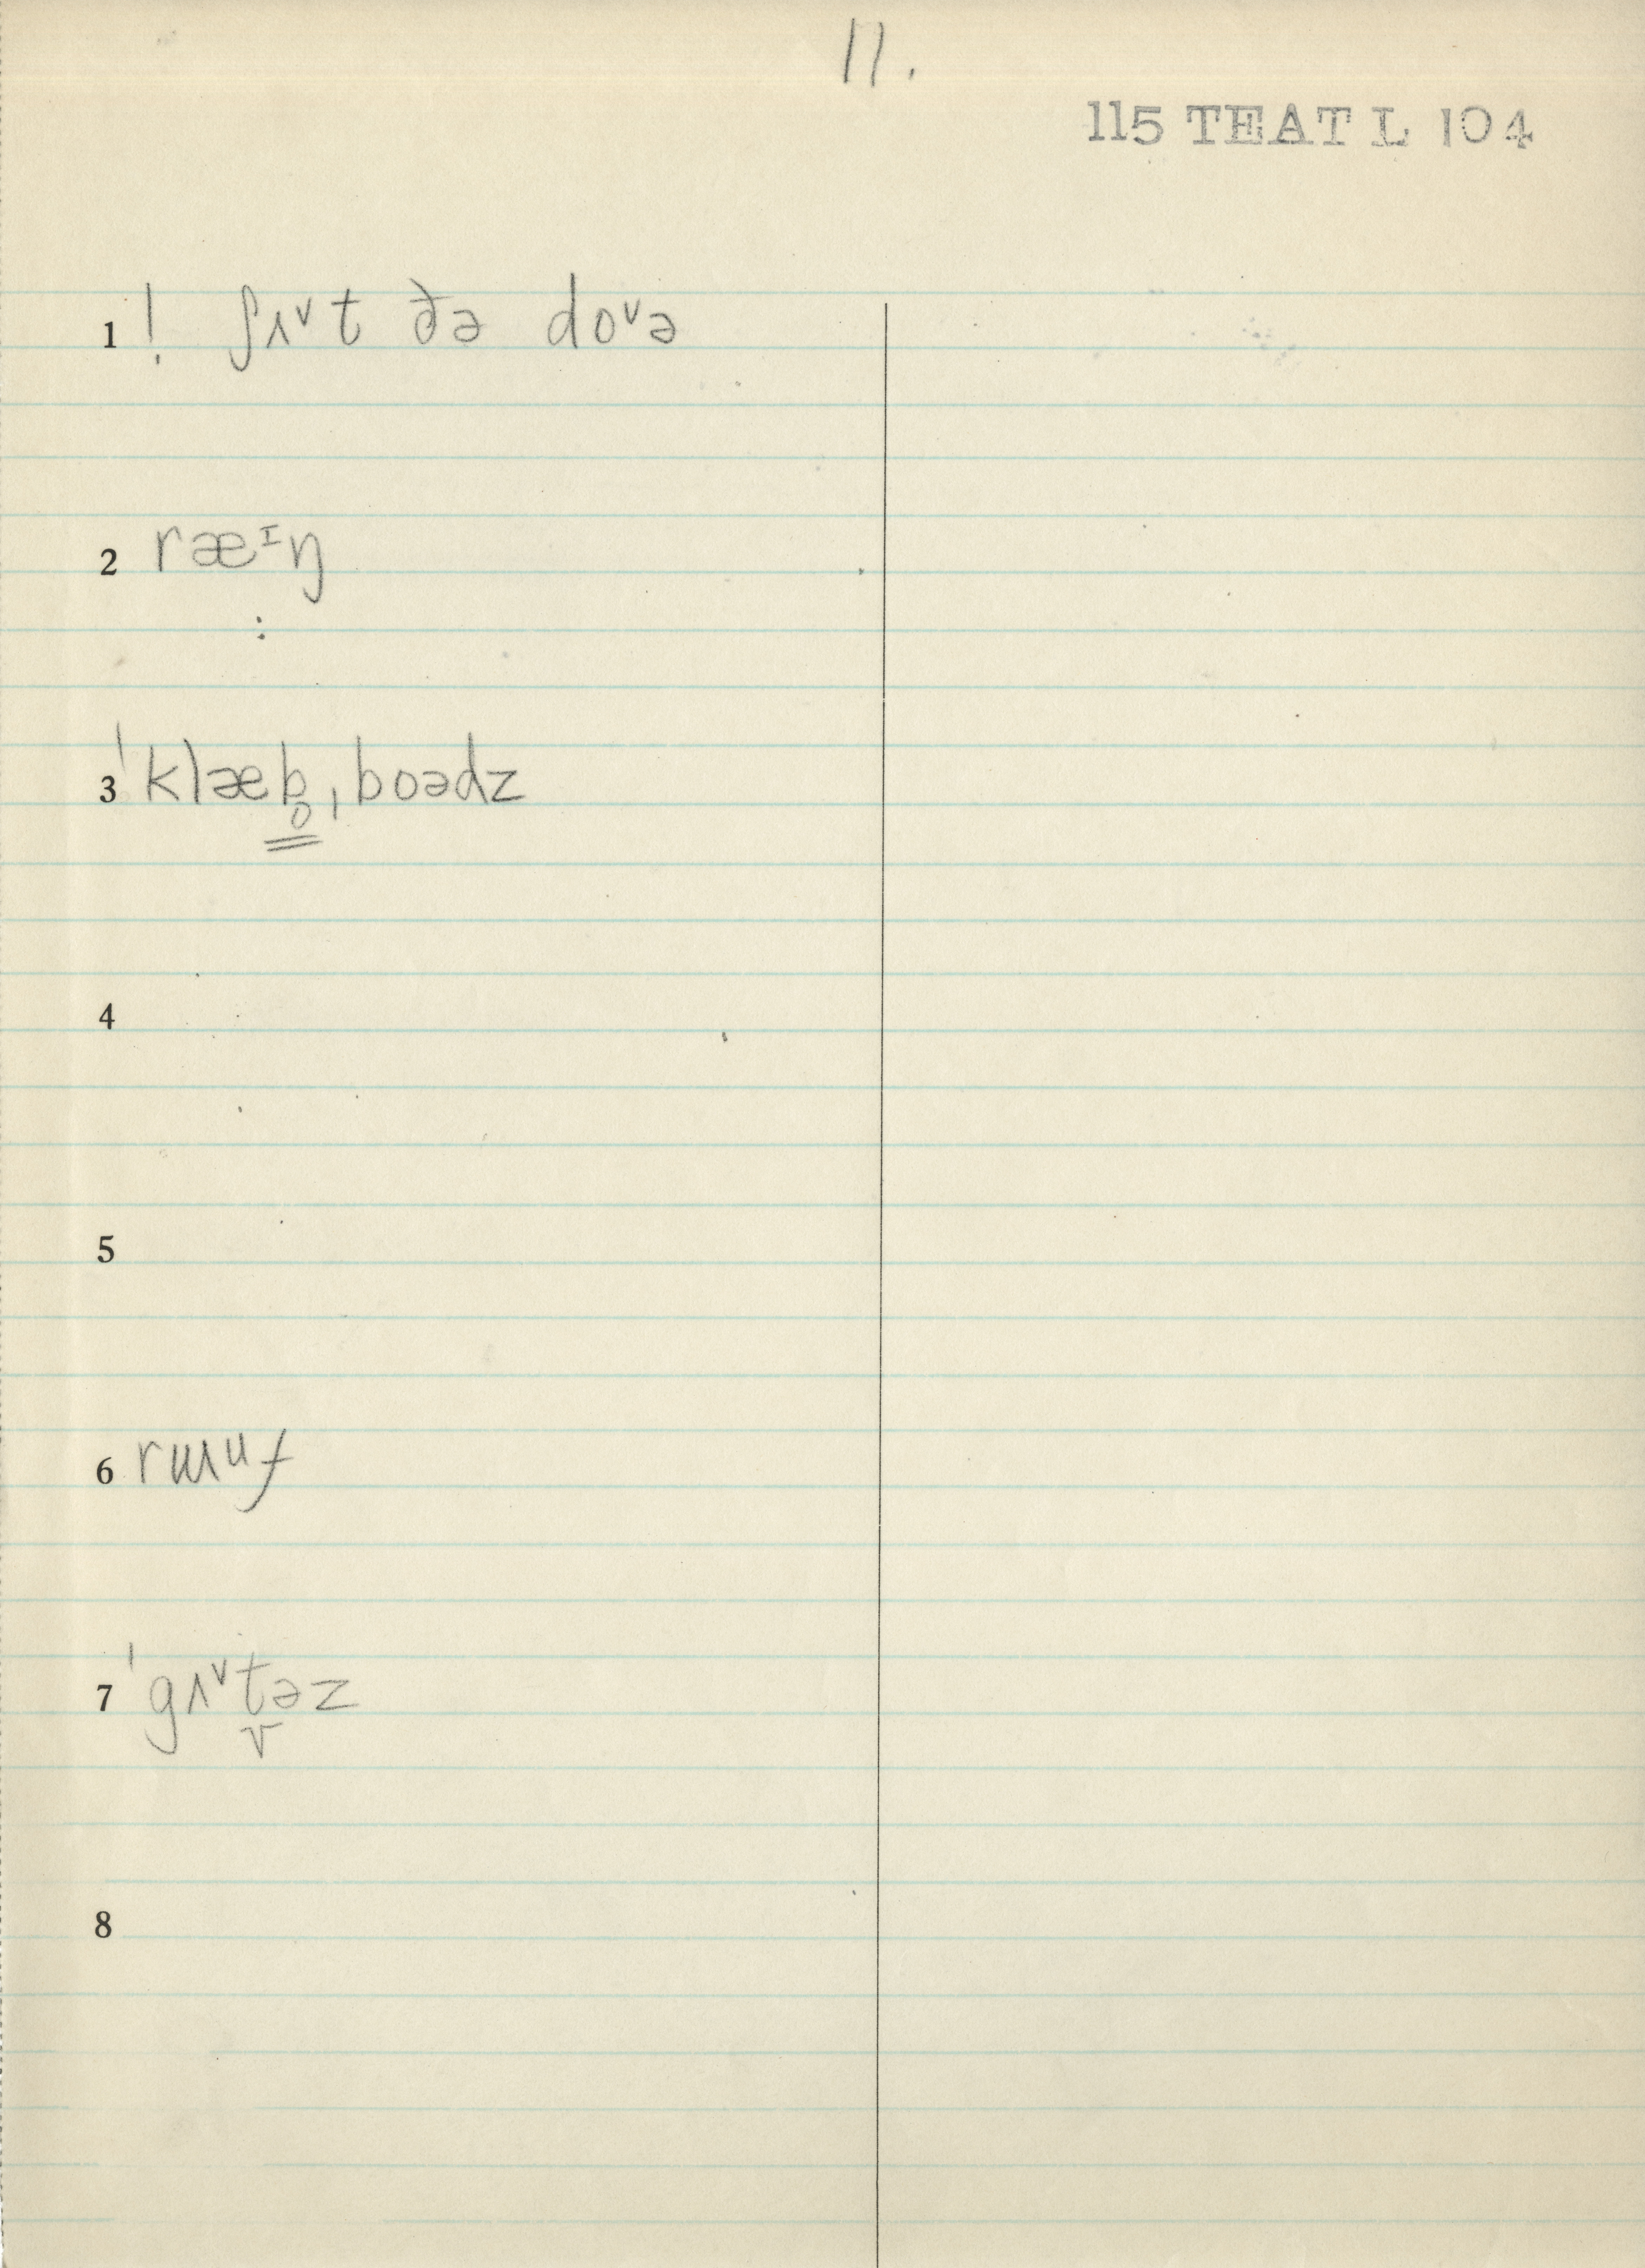 11.
115 TEAT L 104
1 ! ʃʌᵛt ðə doᵛə
2 ræᶦŋ
:
3 ˈklæb̥ˌboədz
4
5
6 rɯᵘf
7 ˈgʌᵛt̬əz
8